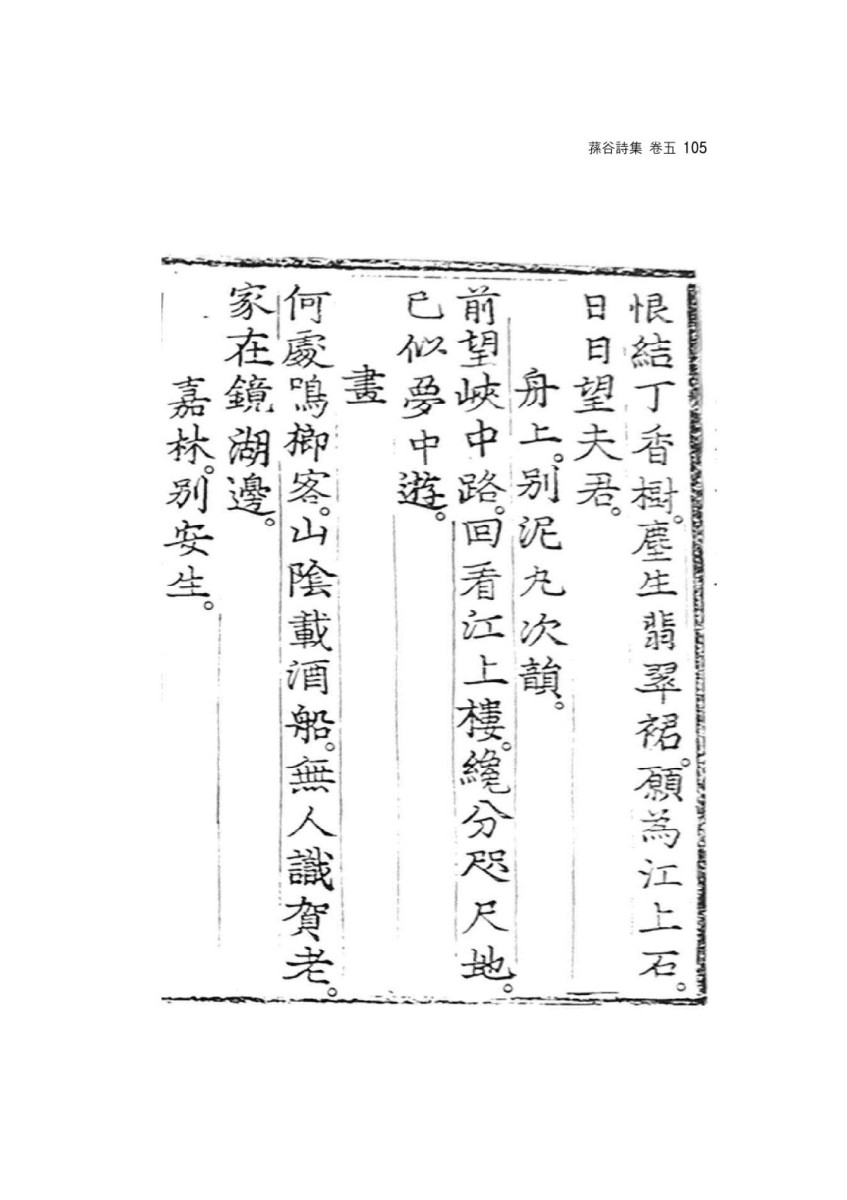 蓀谷詩集 卷五 105
恨結丁香樹。塵生翡翠裙。願為江上石。
日日望夫君。
舟上。別泥丸次韻。
前望峽中路。回看江上樓。纔分咫尺地。
已似夢中遊。
畫
何處鳴榔客。山陰載酒船。無人識賀老。
家在鏡湖邊。
嘉林。別安生。